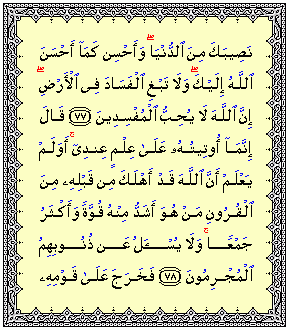 نَصِيبَكَ مِنَ ٱلدُّنْيَا ۖ وَأَحْسِن كَمَآ أَحْسَنَ
ٱللَّهُ إِلَيْكَ ۖ وَلَا تَبْغِ ٱلْفَسَادَ فِى ٱلْأَرْضِ ۖ
إِنَّ ٱللَّهَ لَا يُحِبُّ ٱلْمُفْسِدِينَ ﴿٧٧﴾ قَالَ
إِنَّمَآ أُوتِيتُهُۥ عَلَىٰ عِلْمٍ عِندِىٓ ۚ أَوَلَمْ
يَعْلَمْ أَنَّ ٱللَّهَ قَدْ أَهْلَكَ مِن قَبْلِهِۦ مِنَ
ٱلْقُرُونِ مَنْ هُوَ أَشَدُّ مِنْهُ قُوَّةً وَأَكْثَرُ
جَمْعًا ۚ وَلَا يُسْـَٔلُ عَن ذُنُوبِهِمُ
ٱلْمُجْرِمُونَ ﴿٧٨﴾ فَخَرَجَ عَلَىٰ قَوْمِهِۦ